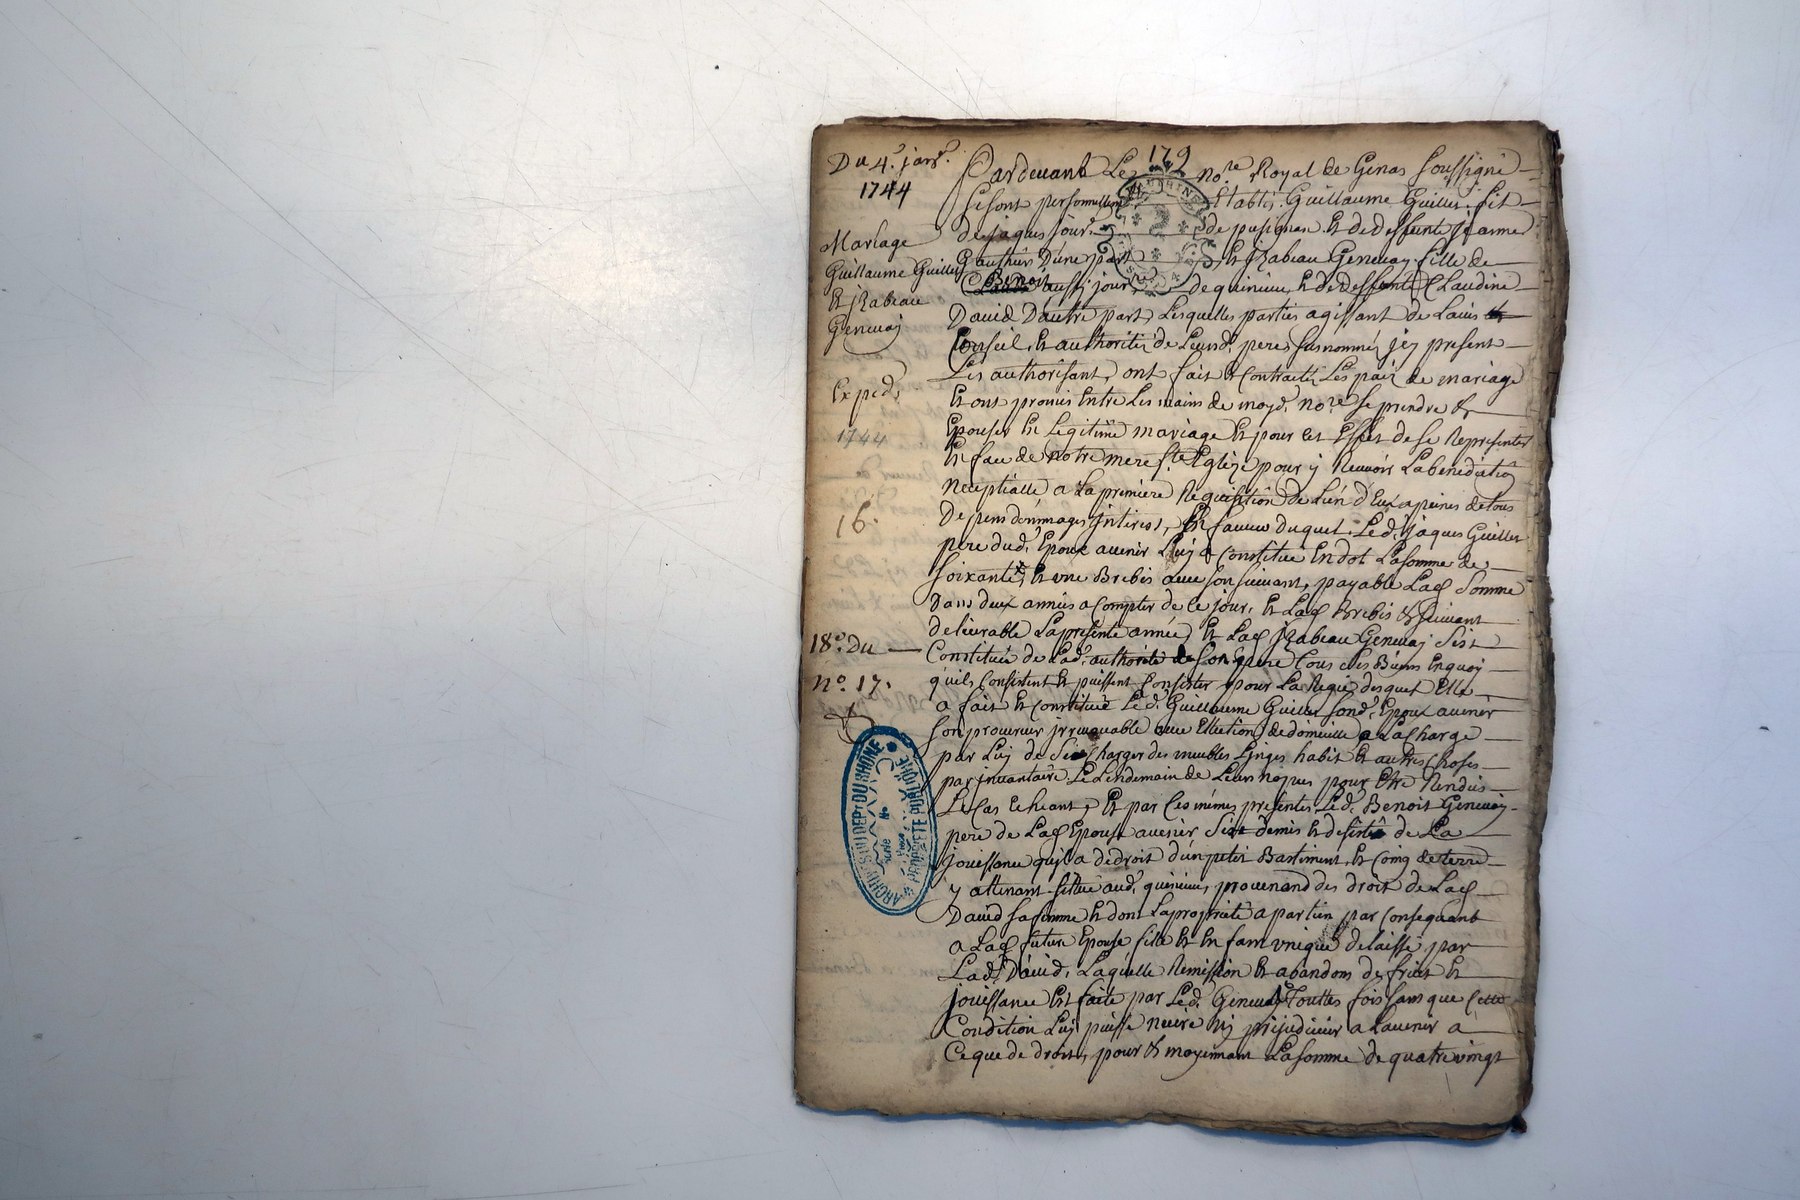 Du 4.e janr.
1744
Mariage
Guillaume Guiller
Et jzabeau
Genevaj
Exped.
1744
16.
18.e Du
no. 17.
ARCHIVES DU DEPT DU RHONE
PROPRIETE PUBLIQUE
179
Pardevant Le no.re Royal de Genas soussigné
se sont personnellem. Etablis Guillaume Guiller fit
de jaques jour. de pusignan Et de deffunte jeanne
Gauthier D'une part Et jzabeau Genevay fille de
Benoit aussi jour. de quinieu Et de deffunte Claudine
David Dautre part, Lesquelles parties agissant de Lavis
Conseil Et authorité de Leursd. peres susnommés jcy present
Les authorisant, ont fait & Contracté Les paix de mariage
Et ont promis Entre Les mains de moyd. no.re se prendre &
Epouser En Legitime mariage Et pour cet Effet de se Representer
En face de notre mere S.te Eglize pour y Recevoir La benediction
Nceptialle a La premiere Requisition de Lun d'Eux a peines de tous
Depens dommages jnterest, En faveur duquel Led. jaques Guiller
pere dud. Epoux avenir Luy a Constitué En dot La somme de
soixante Et une Brebis avec son suivant, payable Lad. Somme
Dans deux années a Compter de Ce jour, Et Lad. Brebis & suivant
delivrable La presente année, Et Lad. jzabeau Genevaj s'est
Constituée de Lad. authorité de son pere Tous ses Biens En quoy
qu'ils Consistent Et puissent Consister pour La Regie desquel Elle
a fait Et Constitué Led. Guillaume Guiller sond. Epoux avenir
son procureur jrrevocable avec Ellection de domicille a La Charge
par Luy de se Charger des meubles Linges habit Et autres Choses
par jnvantaire Le Lendemain de Leurs nopces pour Etre Rendus
Le Cas Echeant, Et par Ces mêmes presentes Led. Benoit Genevay
pere de Lad. Epouse avenir s'est demis Et desisté de La
jouissance qu'il a de droit d'un petit Bastiment, Et Coing de terre
y attenant sittué aud. quinieu, provenand des droit de Lad.
David sa femme Et dont La proprieté apartien par Consequant
a Lad. future Epouse fille Et Enfant unique delaissé par
Lad. David, Laquelle Remission Et abandom de fruit Et
jouissance Est faite par Led. Genevay Touttes fois sans que Cette
Condition Luy puisse nuire ny prejudicier a Lavenir a
Ce que de droit, pour & moyennant La somme de quatrevingt